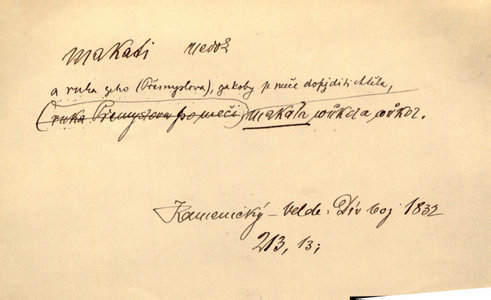 makati nedok
a ruka jeho (Přemyslova), jakoby p meče dojíti chtěla,
(ruka Přemyslova po meči) makala vůkol a vůkol.
Kamenický – Velde. Div boj 1832
213, 13;